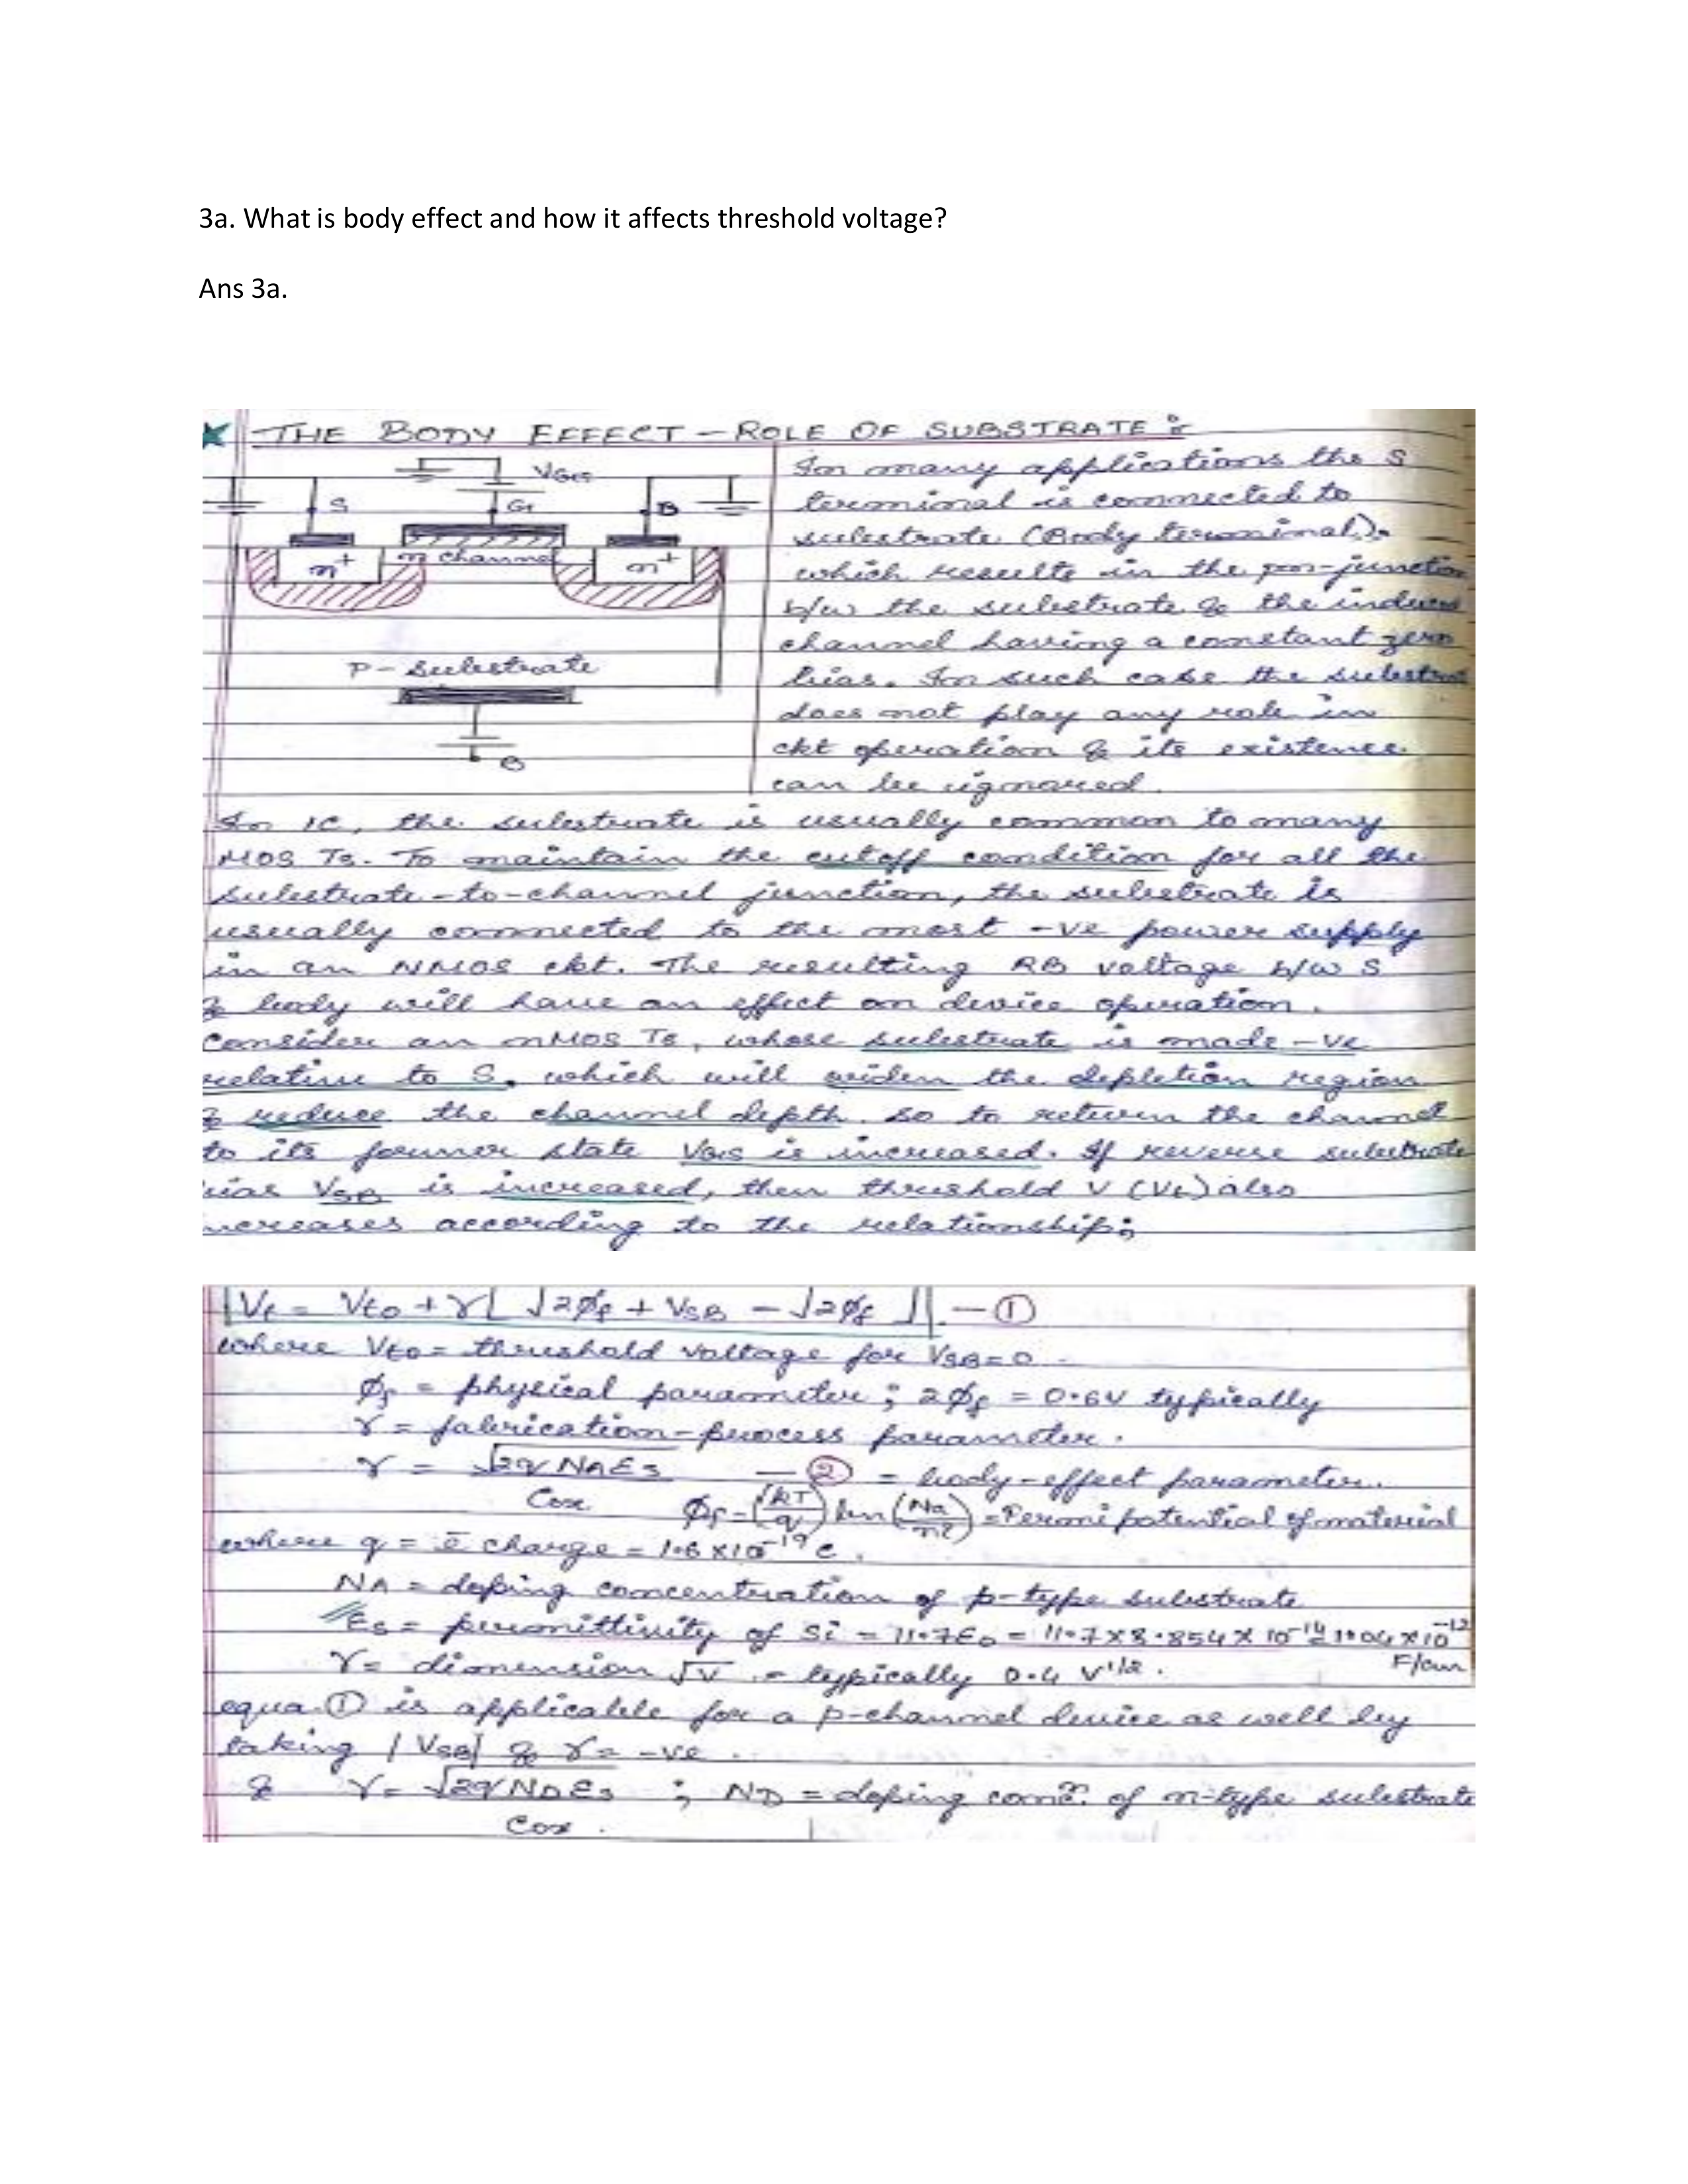 3a. What is body effect and how it affects threshold voltage?
Ans 3a.
THE BODY EFFECT – ROLE OF SUBSTRATE :
VGS
S
G
B
n+
n channel
n+
P - Substrate
B
In many applications the S
terminal is connected to
substrate (Body terminal).
which results in the pn-junction
b/w the substrate & the induced
channel having a constant zero
bias. In such case the substrate
does not play any role in
ckt operation & its existence
can be ignored.
In IC, the substrate is usually common to many
MOS Ts. To maintain the cutoff condition for all the
substrate-to-channel junction, the substrate is
usually connected to the most -ve power supply
in an NMOS ckt. The resulting RB voltage b/w S
& body will have an effect on device operation.
Consider an nMOS Ts, whose substrate is made -ve
relative to S, which will widen the depletion region
& reduce the channel depth. so to return the channel
to its former state VGS is increased. If reverse substrate
bias VSB is increased, then threshold V (Vt) also
increases according to the relationship;
Vt = Vto + γ[ √2φf + VSB - √2φf ] — ①
where Vto = threshold voltage for VSB=0.
φf = physical parameter ; 2φf = 0.6V typically
γ = fabrication-process parameter.
γ = √2qNAEs / Cox — ② = body-effect parameter.
φf = (kT/q) ln(Na/ni) = Fermi potential of material
where q = ē charge = 1.6 x 10^-19 C.
NA = doping concentration of p-type substrate
Es = permittivity of Si = 11.7E0 = 11.7 x 8.854 x 10^-14 = 1.04 x 10^-12 F/cm
γ = dimension √V = typically 0.4 V^1/2.
equa. ① is applicable for a p-channel device as well by
taking |VSB| & γ = -ve
& γ = √2qNDEs / Cox ; ND = doping conc^n. of n-type substrate